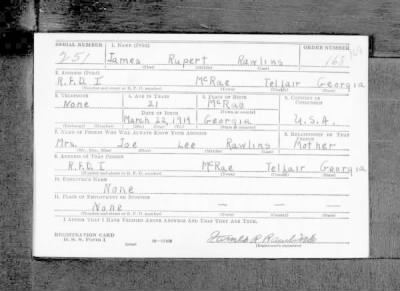 SERIAL NUMBER 1. NAME (Print) ORDER NUMBER
251 James Rupert Rawlins 168
(First) (Middle) (Last)
2. ADDRESS (Print)
R.F.D. 1 McRae Telfair Georgia
(Number and street or R. F. D. number) (Town) (County) (State)
3. TELEPHONE 4. AGE IN YEARS 5. PLACE OF BIRTH 6. COUNTRY OF CITIZENSHIP
None 21 McRae
DATE OF BIRTH
March 22, 1919 Georgia U.S.A.
(Mo.) (Day) (Yr.)
7. NAME OF PERSON WHO WILL ALWAYS KNOW YOUR ADDRESS 8. RELATIONSHIP OF THAT PERSON
Mrs. Joe Lee Rawlins Mother
(Mr., Mrs., Miss) (First) (Middle) (Last)
9. ADDRESS OF THAT PERSON
R.F.D. 1 McRae Telfair Georgia
(Number and street or R. F. D. number) (Town) (County) (State)
10. EMPLOYER'S NAME
None
11. PLACE OF EMPLOYMENT OR BUSINESS
None — — —
(Number and street or R. F. D. number) (Town) (County) (State)
I AFFIRM THAT I HAVE VERIFIED ABOVE ANSWERS AND THAT THEY ARE TRUE.
REGISTRATION CARD
D. S. S. FORM 1 James R Rawlins
(Registrant's signature)